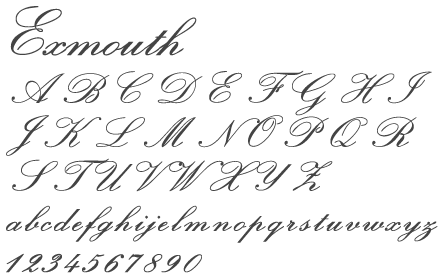 Exmouth
A B C D E F G H I
J K L M N O P Q R
S T U V W X Y Z
abcdefghijklmnopqrstuvwxyz
1234567890